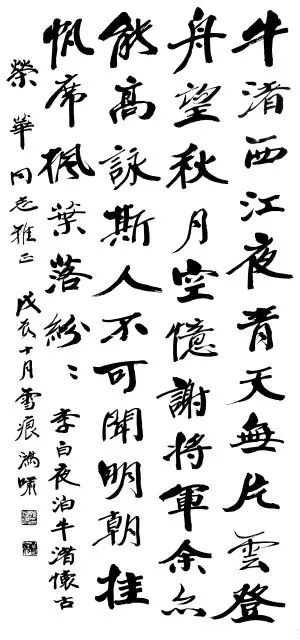 牛渚西江夜青天無片雲登
舟望秋月空憶謝將軍余亦
能高詠斯人不可聞明朝挂
帆席楓葉落紛〻 李白夜泊牛渚懷古
榮華同志雅正 戊辰十月雪痕